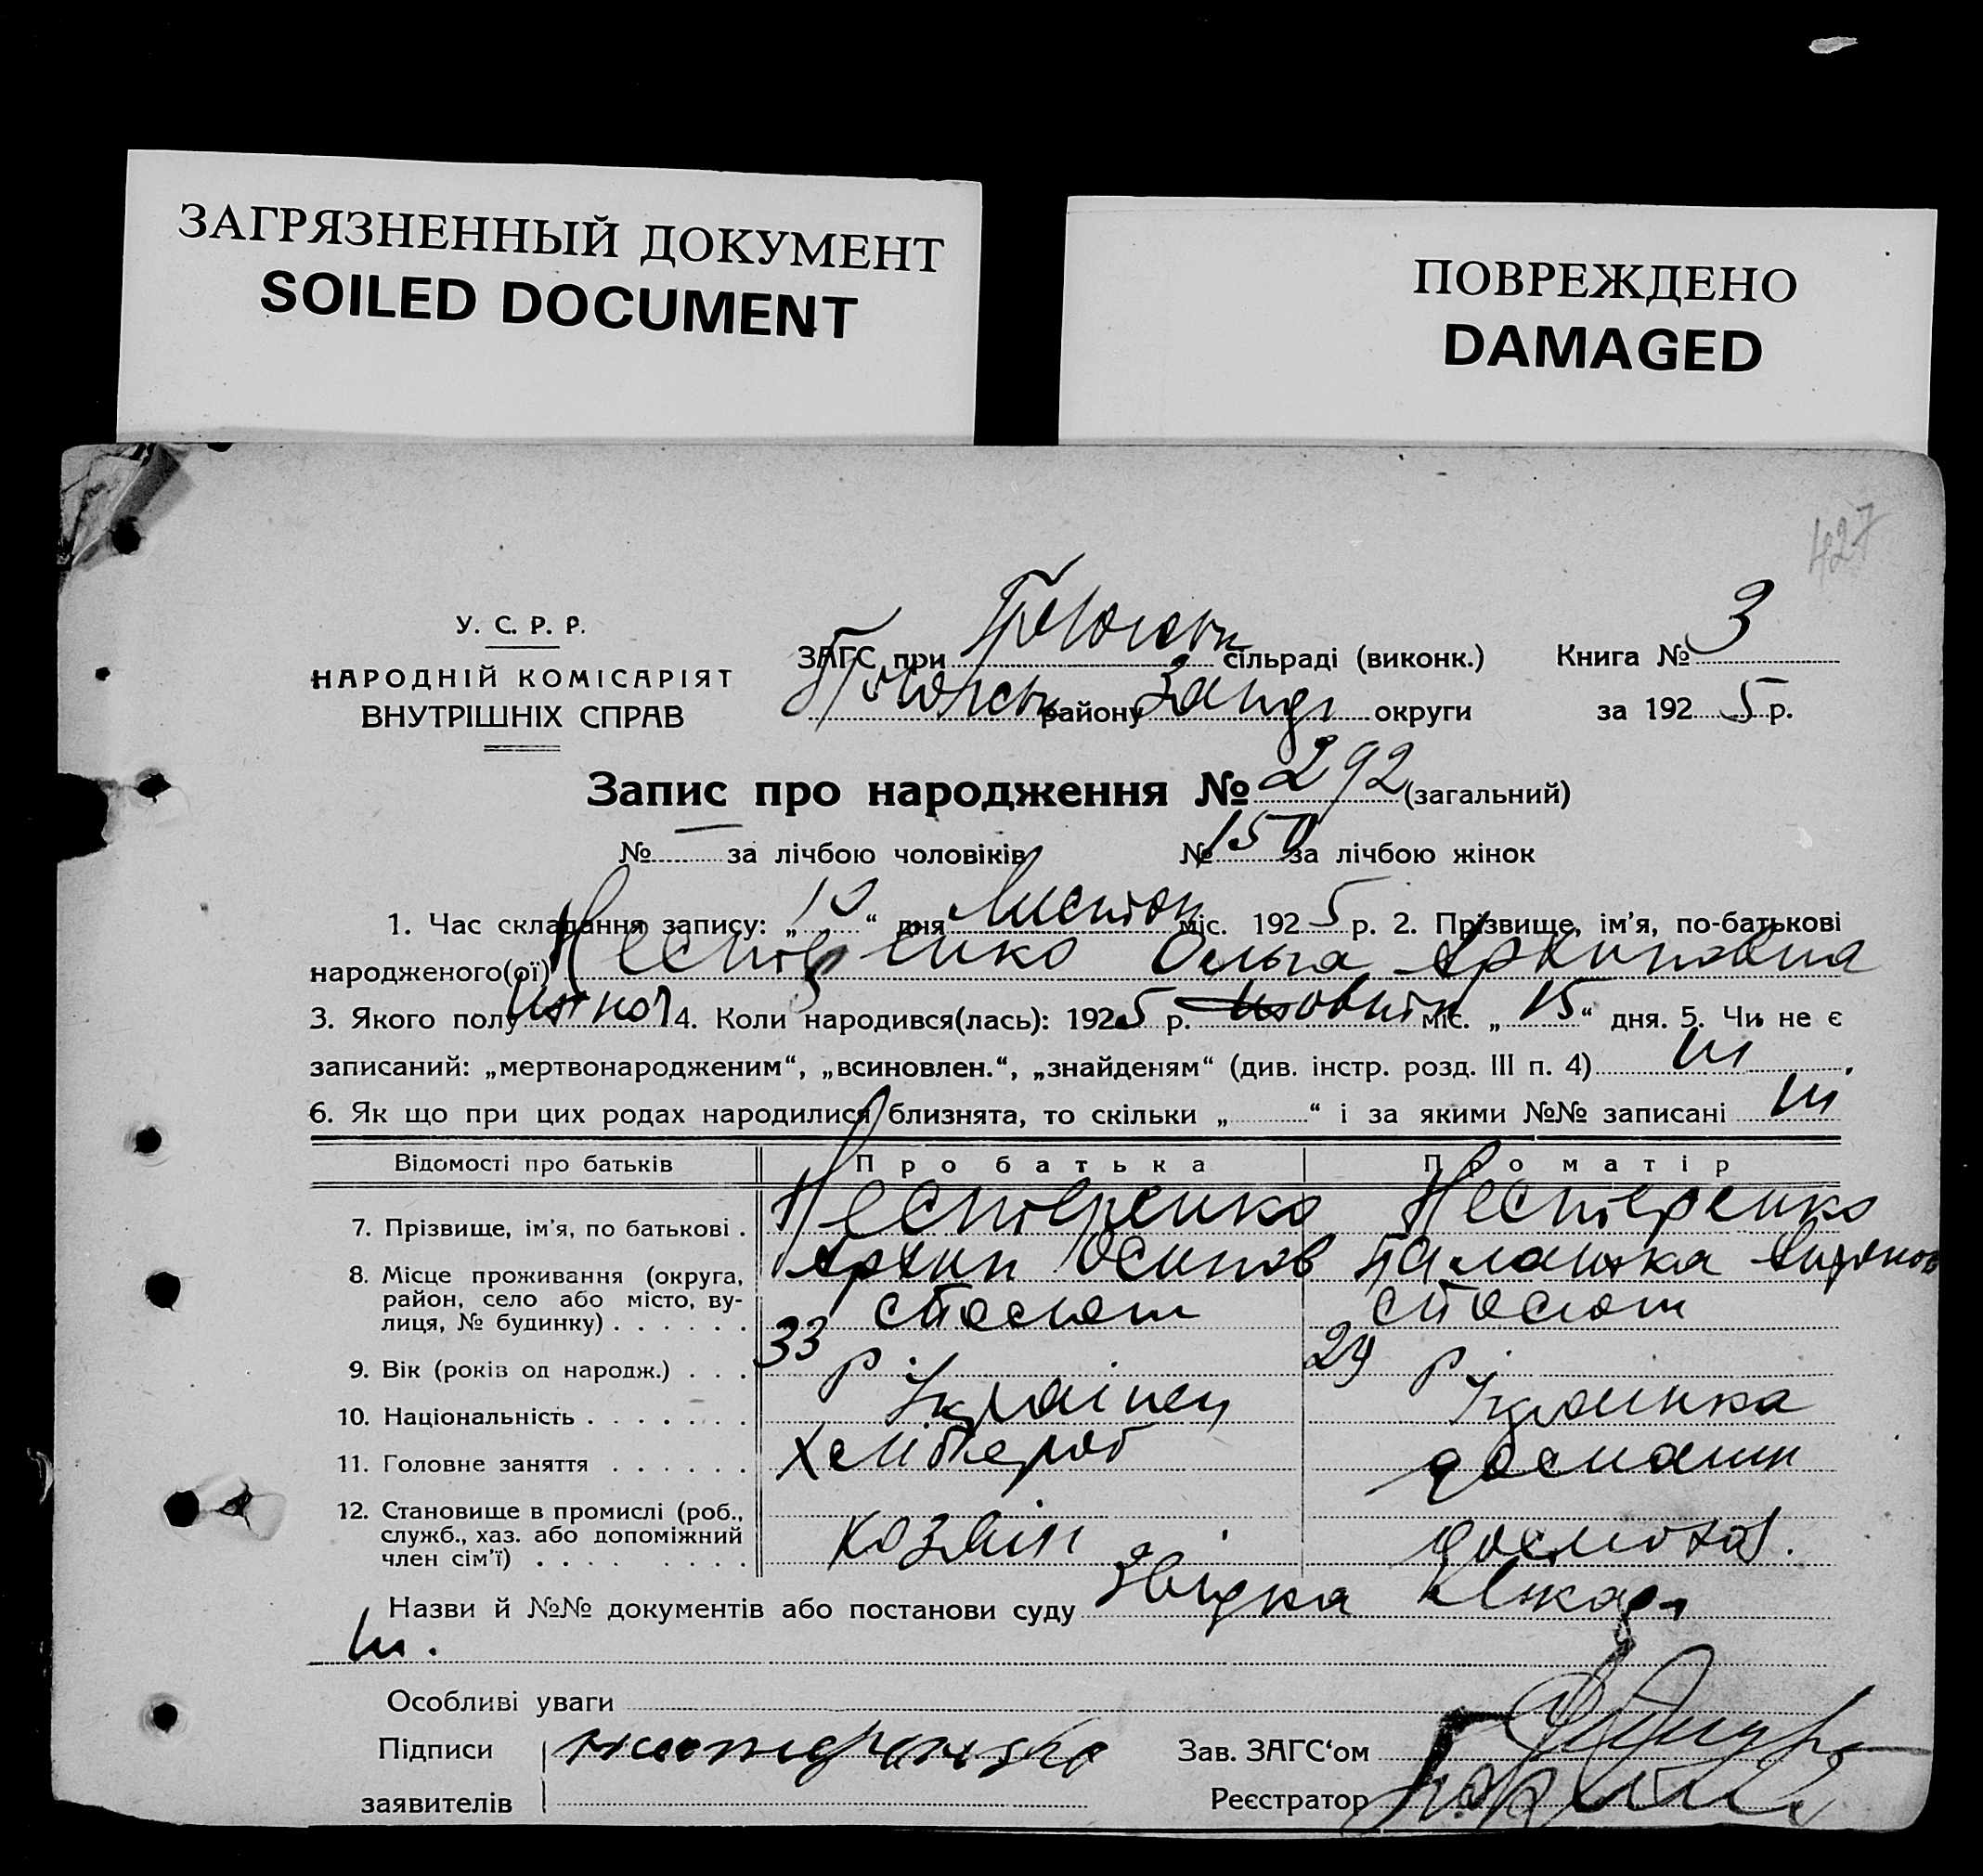 ЗАГРЯЗНЕННЫЙ ДОКУМЕНТ
SOILED DOCUMENT
ПОВРЕЖДЕНО
DAMAGED
427
У. С. Р. Р.
НАРОДНІЙ КОМІСАРІЯТ
ВНУТРІШНІХ СПРАВ
ЗАГС при сільраді (виконк.) Книга № 3
району округи за 1925 р.
Запис про народження № 292 (загальний)
№ — за лічбою чоловіків № 150 за лічбою жінок
1. Час складання запису: „ “ дня міс. 1925 р. 2. Прізвище, ім'я, по-батькові
народженого(ої) Нестеренко Ольга Архиповна
3. Якого полу 4. Коли народився(лась): 1925 р. міс. „15“ дня. 5. Чи не є
записаний: „мертвонародженим“, „всиновлен.“, „знайденям“ (див. інстр. розд. III п. 4) ні.
6. Як що при цих родах народилися близнята, то скільки „ “ і за якими №№ записані ні
Відомості про батьків Про батька Про матір
7. Прізвище, ім'я, по батькові . Нестеренко Нестеренко
Архип Осипов Палашка
8. Місце проживання (округа,
район, село або місто, ву-
лиця, № будинку) . . . . . .
9. Вік (років од народж.) . . . 33 р. 29 р
10. Національність . . . . . . . Українец Українка
11. Головне заняття . . . . . . Хлібороб
12. Становище в промислі (роб.,
служб., хаз. або допоміжний
член сім'ї) . . . . . . . . . хозяін
Назви й №№ документів або постанови суду Звідка
ні.
Особливі уваги
Підписи Зав. ЗАГС'ом
заявителів Реєстратор